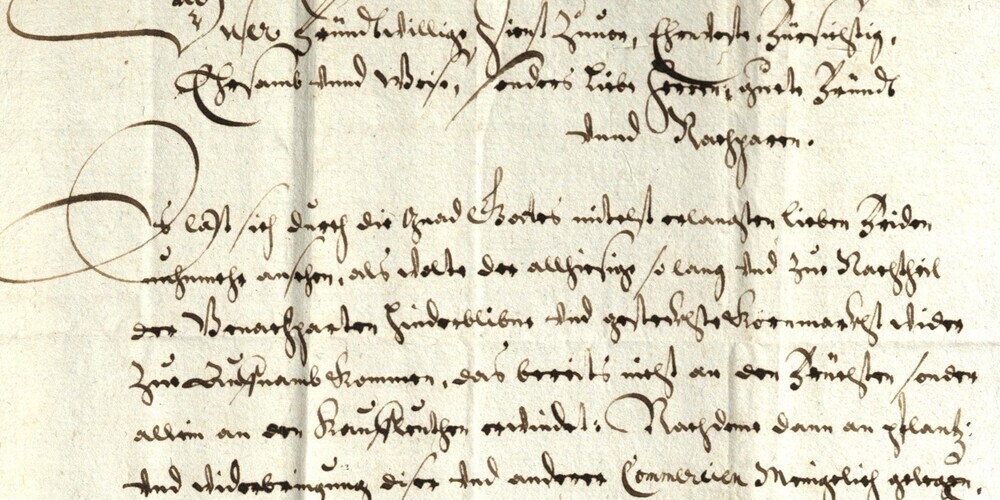 User Fründtwillige dienst zuuor, Ehrnveste, Fürsichtig,
Ehrsamb vnnd Weise, sonders liebe herren, guete Fründt
vnnd Nachparen.
Es laßt sich durch die Gnad Gottes mitelst erlangten lieben Friden
nuhnmehr ansehen, als wolte der allhiesige so lang vnd zue Nachtheil
der Benachparten hinderblibne vnd gesteckhte Kornmarckht wider
zue Aufnamb kommen, das bereits nicht an den Früchten sonder
allein an den Kauffleuthen erwindet: Nachdeme dann an pflantz:
vnd widerbringung diser vnd anderer Commercien Meingelich gelegen,